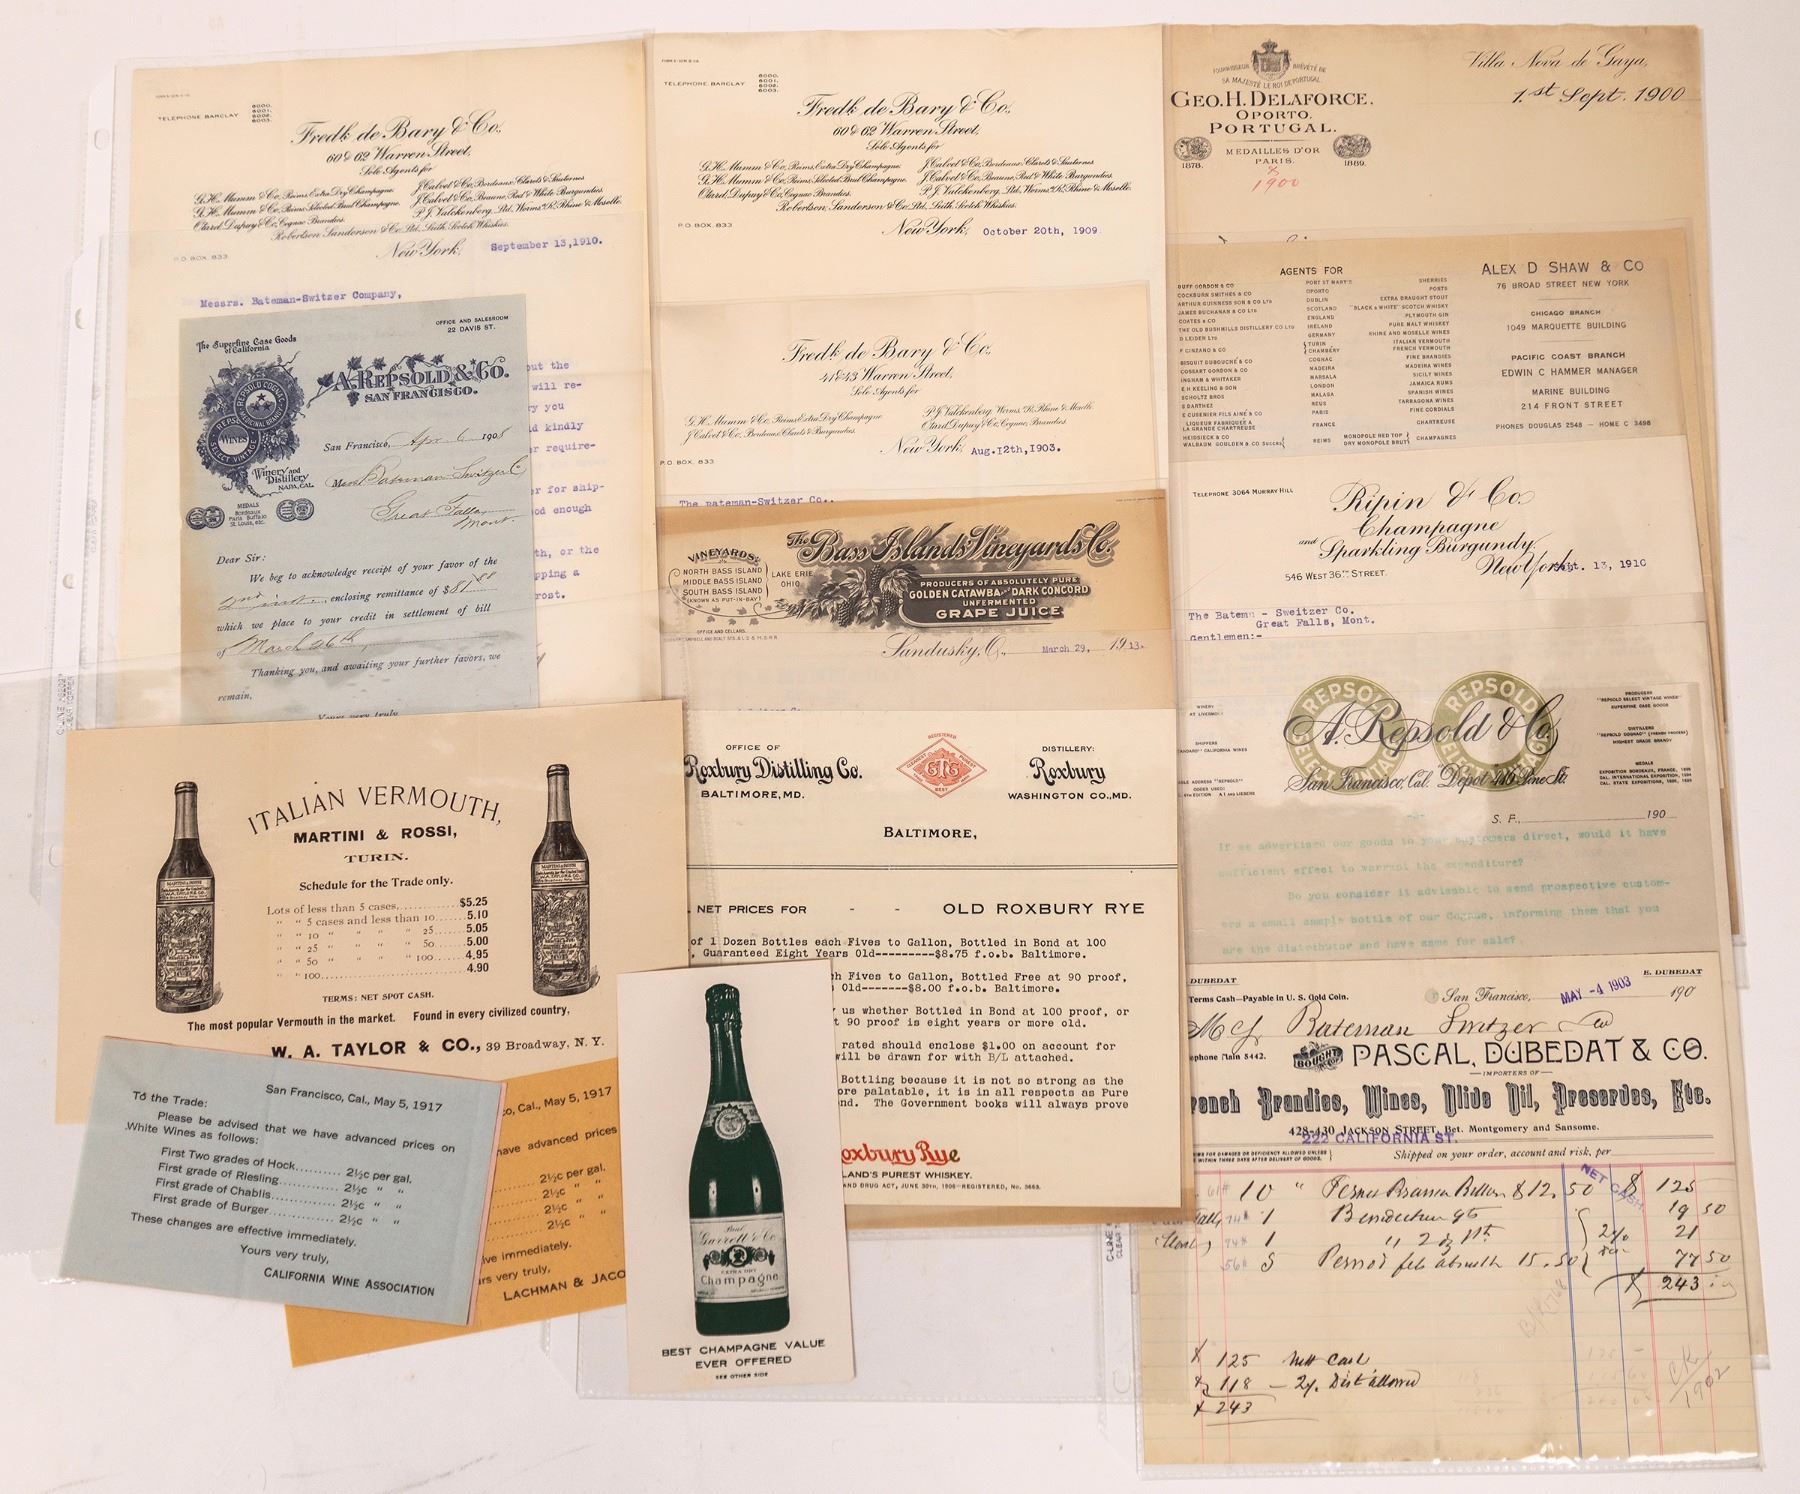 TELEPHONE BARCLAY
6000.
6001.
6002.
6003.
Fredk de Bary & Co.,
60 & 62 Warren Street,
Sole Agents for
G.H. Mumm & Co., Reims Extra Dry Champagne.
G.H. Mumm & Co., Reims Selected Brut Champagne.
Otard, Dupuy & Co., Cognac Brandies.
J. Calvet & Co., Bordeaux, Clarets & Sauternes
J. Calvet & Co., Beaune, Red & White Burgundies.
P. J. Valckenberg, Ltd., Worms O/R, Rhine & Moselle.
Robertson, Sanderson & Co. Ltd., Leith, Scotch Whiskies.
P.O. BOX, 833
New York, September 13, 1910.
Messrs. Bateman-Switzer Company,
out the
will re-
y you
d kindly
r require-
er for ship-
od enough
th, or the
pping a
rost.
The Superfine Case Goods
of California
OFFICE AND SALESROOM
22 DAVIS ST.
A. REPSOLD & CO.
SAN FRANCISCO.
REPSOLD COGNAC
MEDICINAL BRANDY
REPSOLD
WINES
SELECT VINTAGE
Winery and
Distillery
NAPA, CAL.
MEDALS
Bordeaux
Paris Buffalo
St. Louis, etc.
San Francisco, Apr 6 1908
Mess Bateman Switzer Co
Great Falls,
Mont.
Dear Sir:
We beg to acknowledge receipt of your favor of the
2nd inst. enclosing remittance of $81.88
which we place to your credit in settlement of bill
of March 26th
Thanking you, and awaiting your further favors, we
remain,
Yours very truly,
TELEPHONE BARCLAY
6000.
6001.
6002.
6003.
Fredk de Bary & Co.,
60 & 62 Warren Street,
Sole Agents for
G.H. Mumm & Co., Reims Extra Dry Champagne.
G.H. Mumm & Co., Reims Selected Brut Champagne.
Otard, Dupuy & Co., Cognac Brandies.
J. Calvet & Co., Bordeaux, Clarets & Sauternes
J. Calvet & Co., Beaune, Red & White Burgundies.
P. J. Valckenberg, Ltd., Worms O/R, Rhine & Moselle.
Robertson, Sanderson & Co. Ltd., Leith, Scotch Whiskies.
P.O. BOX, 833
New York, October 20th, 1909.
Fredk de Bary & Co.,
41 & 43 Warren Street,
Sole Agents for
G.H. Mumm & Co., Reims Extra Dry Champagne
J. Calvet & Co., Bordeaux, Clarets & Burgundies.
P. J. Valckenberg, Worms O/R, Rhine & Moselle.
Otard, Dupuy & Co., Cognac, Brandies.
P.O. BOX, 833.
New York, Aug. 12th, 1903.
The Bateman-Switzer Co.,
VINEYARDS
NORTH BASS ISLAND
MIDDLE BASS ISLAND
SOUTH BASS ISLAND
(KNOWN AS PUT-IN-BAY)
LAKE ERIE,
OHIO
The Bass Islands Vineyards Co.
PRODUCERS OF ABSOLUTELY PURE
GOLDEN CATAWBA AND DARK CONCORD
UNFERMENTED
GRAPE JUICE
OFFICE AND CELLARS.
Sandusky, O., March 29, 1913.
OFFICE OF
Roxbury Distilling Co.
BALTIMORE, MD.
REGISTERED
BEST
DISTILLERY:
Roxbury
WASHINGTON CO., MD.
BALTIMORE,
NET PRICES FOR - - OLD ROXBURY RYE
of 1 Dozen Bottles each Fives to Gallon, Bottled in Bond at 100
, Guaranteed Eight Years Old---------$8.75 f.o.b. Baltimore.
ch Fives to Gallon, Bottled Free at 90 proof,
s Old-------$8.00 f.o.b. Baltimore.
us whether Bottled in Bond at 100 proof, or
t 90 proof is eight years or more old.
rated should enclose $1.00 on account for
will be drawn for with B/L attached.
Bottling because it is not so strong as the
ore palatable, it is in all respects as Pure
nd. The Government books will always prove
oxbury Rye
LAND'S PUREST WHISKEY.
AND DRUG ACT, JUNE 30TH, 1906—REGISTERED, No. 3663.
FOURNISSEUR BRÉVETÉ DE
SA MAJESTÉ LE ROI DE PORTUGAL.
GEO. H. DELAFORCE.
OPORTO.
PORTUGAL.
MEDAILLES D'OR
PARIS.
1878.
1889.
& 1900
Villa Nova de Gaya,
1.st Sept. 1900
AGENTS FOR
BUFF GORDON & CO PORT ST MARY'S SHERRIES
COCKBURN SMITHES & CO OPORTO PORTS
ARTHUR GUINNESS SON & CO LTD DUBLIN EXTRA DRAUGHT STOUT
JAMES BUCHANAN & CO LTD SCOTLAND "BLACK & WHITE" SCOTCH WHISKY
COATES & CO ENGLAND PLYMOUTH GIN
THE OLD BUSHMILLS DISTILLERY CO LTD IRELAND PURE MALT WHISKEY
D LEIDEN LTD GERMANY RHINE AND MOSELLE WINES
F CINZANO & CO TURIN ITALIAN VERMOUTH
CHAMBÉRY FRENCH VERMOUTH
BISQUIT DUBOUCHÉ & CO COGNAC FINE BRANDIES
COSSART GORDON & CO MADEIRA MADEIRA WINES
INGHAM & WHITAKER MARSALA SICILY WINES
E H KEELING & SON LONDON JAMAICA RUMS
SCHOLTZ BROS MALAGA SPANISH WINES
S DARTHEZ REUS TARRAGONA WINES
E CUSENIER FILS AINÉ & CO PARIS FINE CORDIALS
LIQUEUR FABRIQUEE A
LA GRANDE CHARTREUSE FRANCE CHARTREUSE
HEIDSIECK & CO
WALBAUM GOULDEN & CO SUCCRS REIMS MONOPOLE RED TOP
DRY MONOPOLE BRUT CHAMPAGNES
ALEX D SHAW & CO
76 BROAD STREET NEW YORK
CHICAGO BRANCH
1049 MARQUETTE BUILDING
PACIFIC COAST BRANCH
EDWIN C HAMMER MANAGER
MARINE BUILDING
214 FRONT STREET
PHONES DOUGLAS 2548 - HOME C 3498
TELEPHONE 3064 MURRAY HILL
Ripin & Co.
Champagne
and Sparkling Burgundy,
546 WEST 36TH STREET.
New York, Sept. 13, 1910
The Batemn - Sweitzer Co.
Great Falls, Mont.
Gentlemen:-
REPSOLD
REPSOLD
A. Repsold & Co.
San Francisco, Cal. Depot 416 Pine St.
WINERY
AT LIVERMORE
SHIPPERS
STANDARD CALIFORNIA WINES
CABLE ADDRESS "REPSOLD"
CODES USED:
A 1 AND LIEBERS
PRODUCERS
"REPSOLD SELECT VINTAGE WINES"
SUPERFINE CASE GOODS
DISTILLERS
"REPSOLD COGNAC" (FRENCH PROCESS)
HIGHEST GRADE BRANDY
MEDALS
S. F., 190
-2-
If we advertised our goods to your customers direct, would it have
sufficient effect to warrant the expenditure?
Do you consider it advisable to send prospective custom-
ers a small sample bottle of our Cognac, informing them that you
are the distributor and have same for sale?
DUBEDAT
E. DUBEDAT
Terms Cash—Payable in U. S. Gold Coin.
San Francisco, MAY -4 1903 190
M Bateman Switzer Co
ephone Main 5442.
BOUGHT OF
PASCAL, DUBEDAT & CO.
IMPORTERS OF
rench Brandies, Wines, Olive Oil, Preserves, Etc.
428-430 JACKSON STREET, Bet. Montgomery and Sansome.
222 CALIFORNIA ST.
IMS FOR DAMAGES OR DEFICIENCY ALLOWED UNLESS
WITHIN THREE DAYS AFTER DELIVERY OF GOODS.
Shipped on your order, account and risk, per
NET CASH
61# 10 " Fernet Branca Bitters $12.50 $ 125
74# 1 Benedictine qts 19 50
74# 1 " 2 dz pts 2% 21
56# 5 Pernod fils absinth 15.50 77 50
$ 243
$ 125 Nett Cash
$ 118 - 2% Disct allowed
$ 243
ITALIAN VERMOUTH,
MARTINI & ROSSI,
TURIN.
Schedule for the Trade only.
Lots of less than 5 cases............$5.25
" " 5 cases and less than 10......5.10
" " 10 " " " " 25......5.05
" " 25 " " " " 50......5.00
" " 50 " " " " 100......4.95
" 100......................4.90
TERMS: NET SPOT CASH.
The most popular Vermouth in the market. Found in every civilized country,
W. A. TAYLOR & CO., 39 Broadway, N. Y.
MARTINI & ROSSI
MARTINI & ROSSI
San Francisco, Cal., May 5, 1917
To the Trade:
Please be advised that we have advanced prices on
White Wines as follows:
First Two grades of Hock.......... 2½c per gal.
First grade of Riesling............ 2½c " "
First grade of Chablis............. 2½c " "
First grade of Burger.............. 2½c " "
These changes are effective immediately.
Yours very truly,
CALIFORNIA WINE ASSOCIATION
co, Cal., May 5, 1917
have advanced prices
2½c per gal.
2½c " "
2½c " "
2½c " "
ive immediately.
rs very truly,
LACHMAN & JACO
Brut
Garrett & Co.
EXTRA DRY
Champagne
BEST CHAMPAGNE VALUE
EVER OFFERED
SEE OTHER SIDE